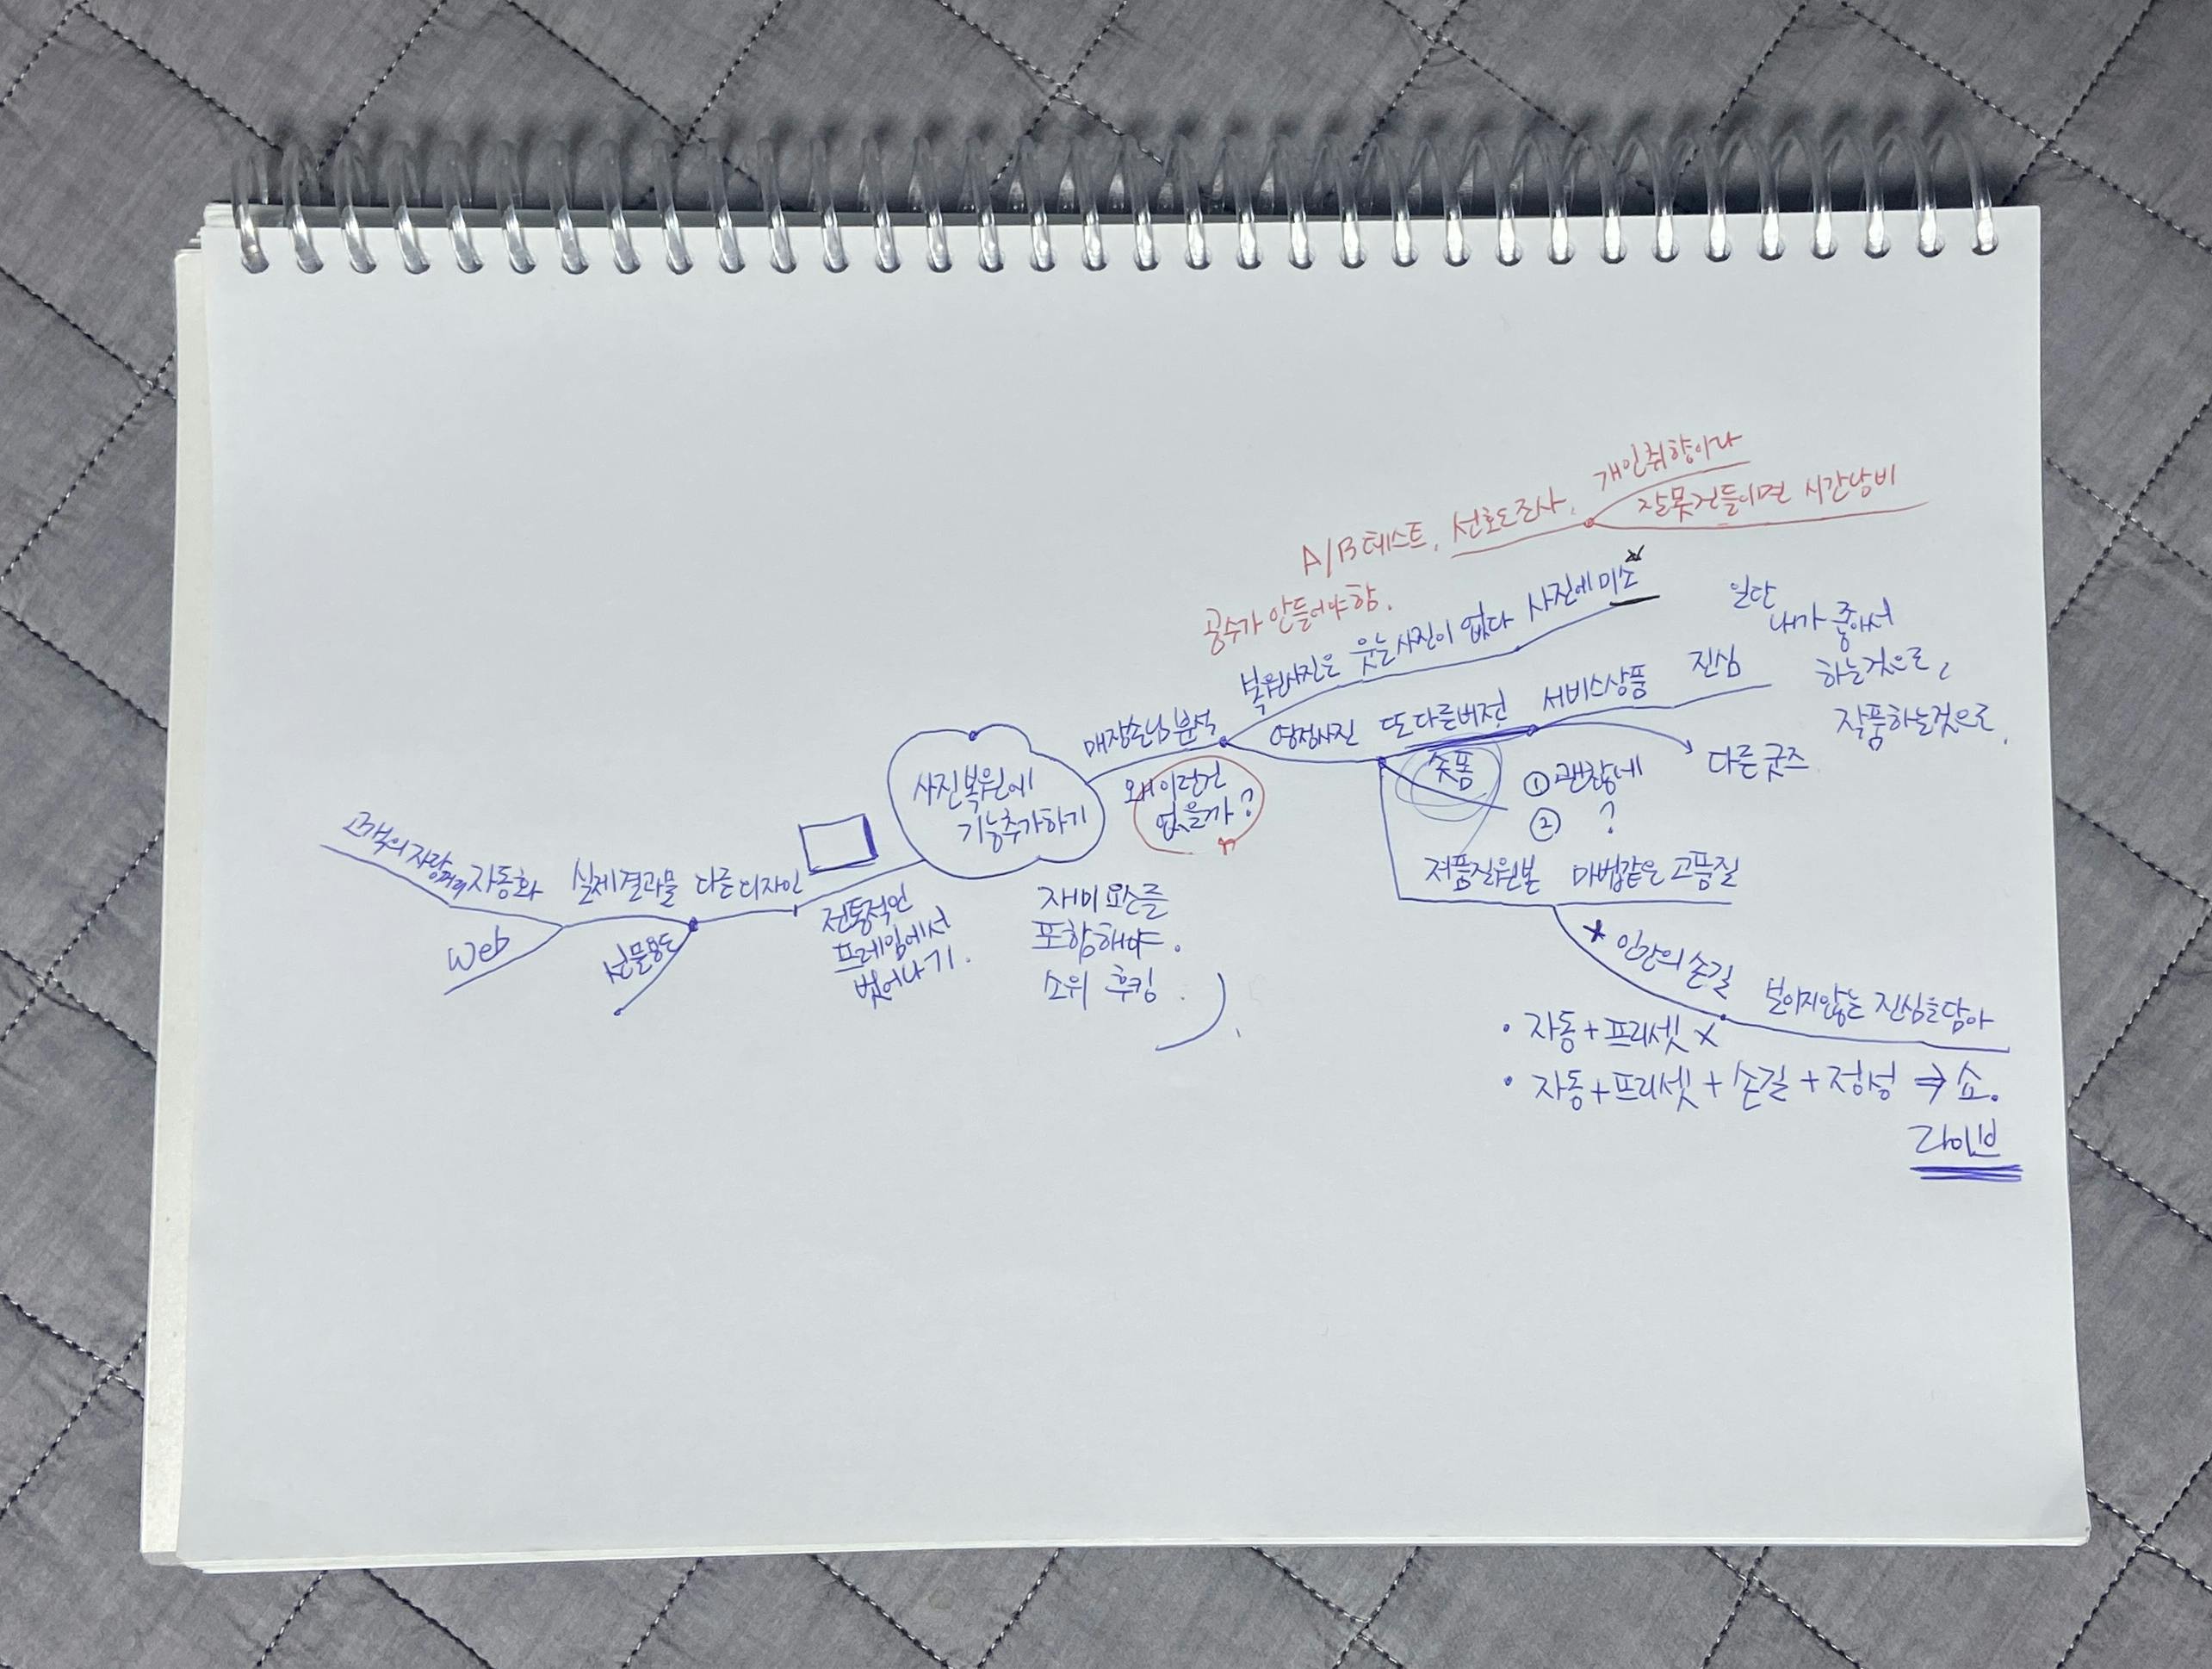 개인취향이라
잘못건들이면 시간낭비
A/B 테스트, 선호도조사,
공수가 안들어야함.
복원사진은 웃는사진이 없다 사진에 미소
일단
내가 좋아서
하는것으로,
작품하는것으로,
매장손님분석
영정사진 또다른버전 서비스상품 진심
왜이런건
없을까?
숏폼
① 괜찮네
② ?
다른굿즈
사진복원에
기능추가하기
저품질원본 마법같은 고품질
고객의 자랑거리 자동화 실제결과물 다른디자인
Web
선물용도
전통적인
프레임에서
벗어나기.
재미요소를
포함해야.
소위 후킹.
인간의 손길
보이지않는 진심을담아
· 자동+프리셋 X
· 자동+프리셋+손길+정성 ⇒ 쇼.
라이브